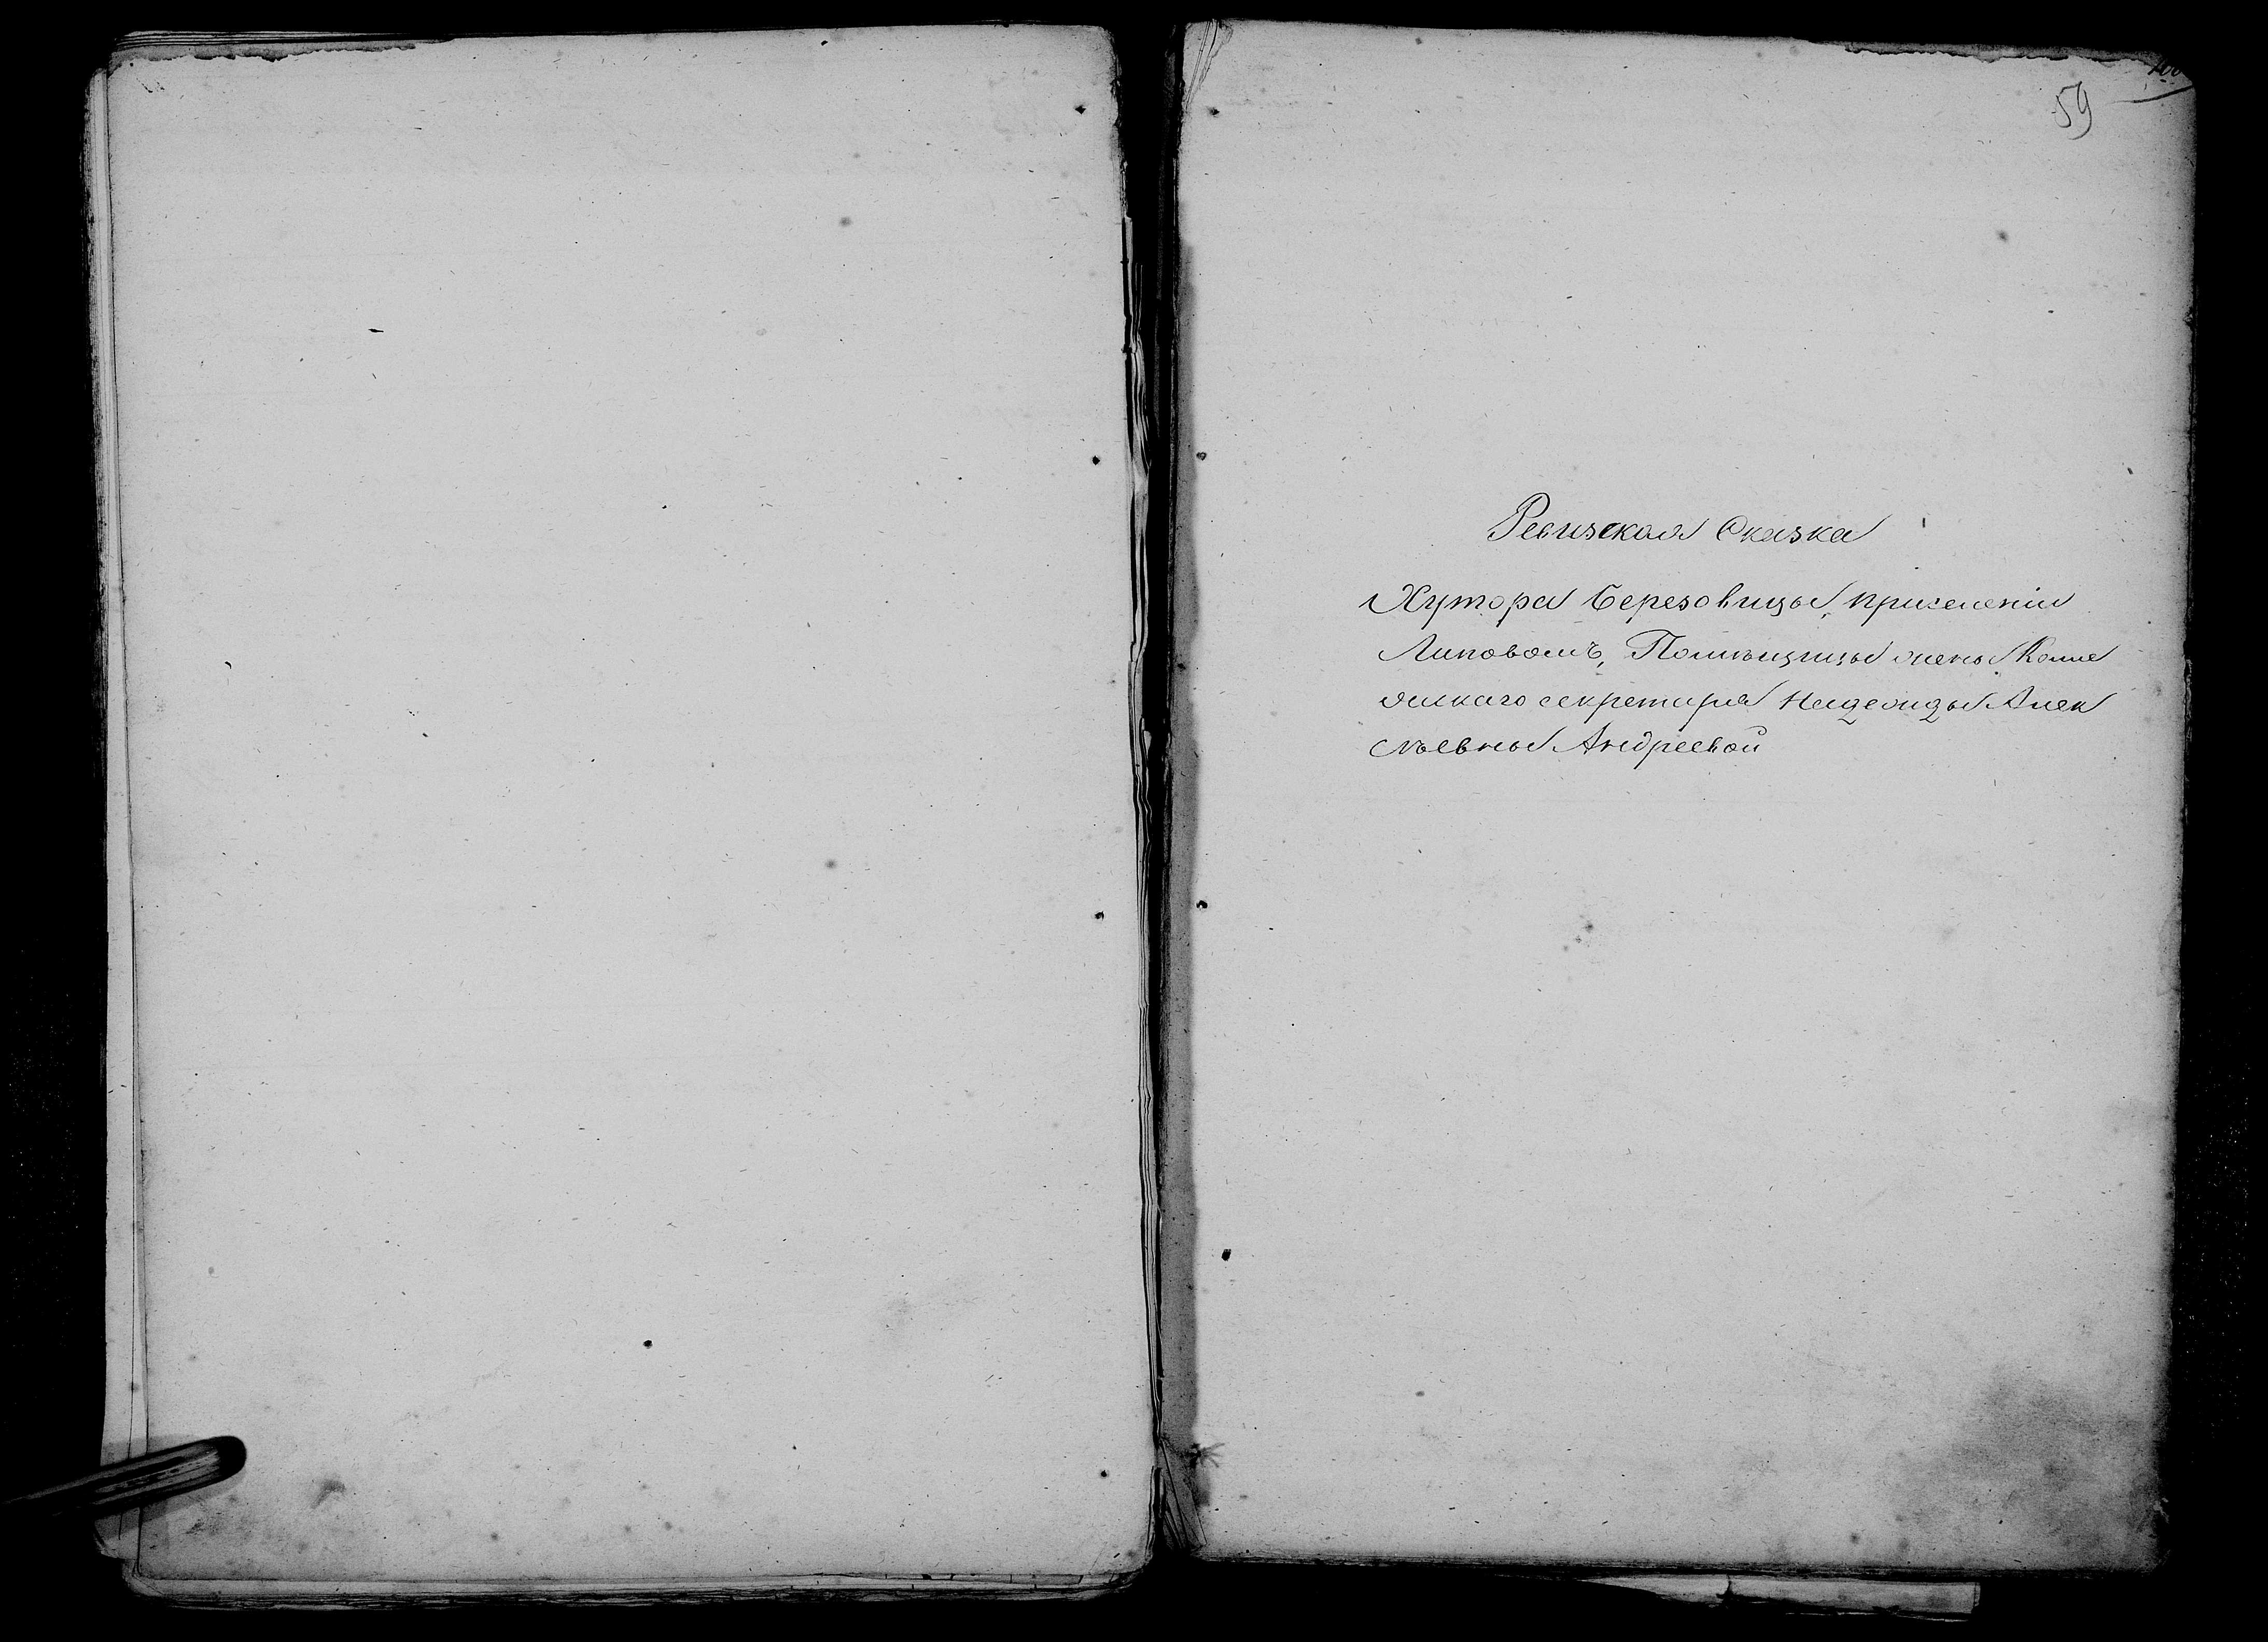 59
Ревизская Сказка
Хутора Березовицы, приселении
Липовомъ, Помѣщицы жены Колле
жскаго секретаря Надежды Алек
сѣевны Андреевой